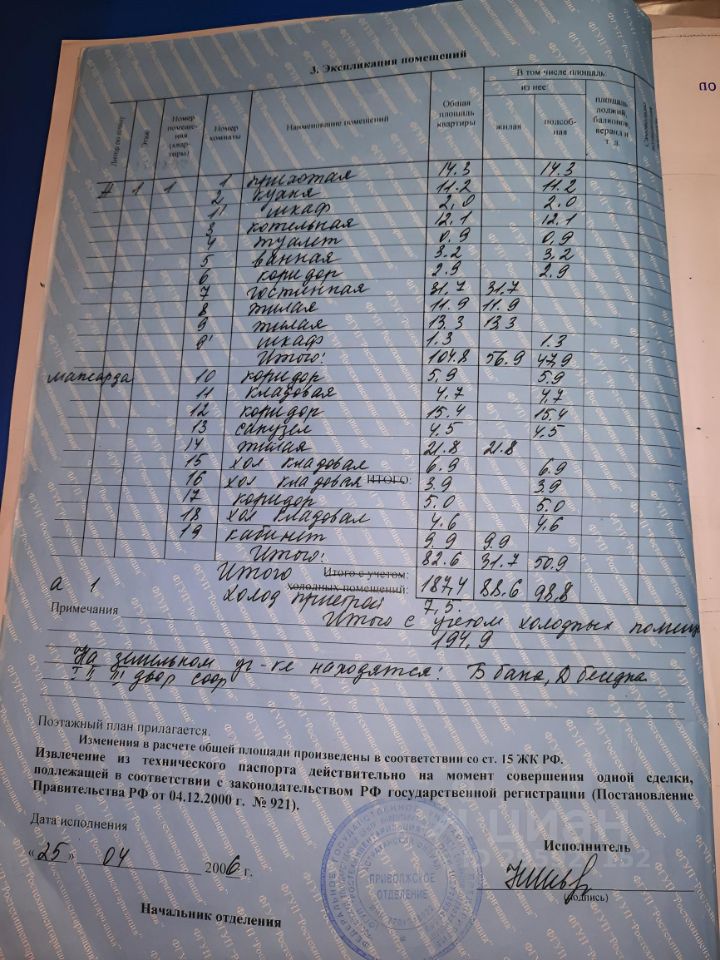 3. Экспликация помещений
Литер по плану
Этаж
Номер помеще-
ния
(квар-
тиры)
Номер
комнаты
Наименование помещений
Общая
площадь
квартиры
В том числе площадь:
из нее:
жилая
подсоб-
ная
площадь
лоджий,
балконов,
веранд и
т. д.
по
А 1 1 1 прихожая 14.3 14.3
2 кухня 11.2 11.2
1' шкаф 2.0 2.0
3 котельная 12.1 12.1
4 туалет 0.9 0,9
5 ванная 3.2 3,2
6 коридор 2.9 2.9
7 гостинная 31.7 31.7
8 жилая 11.9 11.9
9 жилая 13.3 13,3
9' шкаф 1.3 1.3
Итого: 104.8 56.9 47.9
мансарда 10 коридор 5,9 5.9
11 кладовая 4,7 4,7
12 коридор 15.4 15.4
13 санузел 4.5 4.5
14 жилая 21.8 21.8
15 хол кладовая 6.9 6.9
16 хол кладовая ИТОГО: 3.9 3.9
17 коридор 5.0 5.0
18 хол кладовая 4.6 4.6
19 кабинет 9.9 9.9
Итого: 82.6 31.7 50.9
Итого Итого с учетом: 187,4 88.6 98.8
а 1 холодных помещений:
холод пристрой 7,5.
Примечания
Итого с учетом холодных помещ
194,9
На земельном уч-ке находятся: Б баня, Д беседка
I II III двор соор
Поэтажный план прилагается.
Изменения в расчете общей площади произведены в соответствии со ст. 15 ЖК РФ.
Извлечение из технического паспорта действительно на момент совершения одной сделки,
подлежащей в соответствии с законодательством РФ государственной регистрации (Постановление
Правительства РФ от 04.12.2000 г. № 921).
Дата исполнения
« 25 » 04 2006 г.
Исполнитель
(подпись)
Начальник отделения
ПРИВОЛЖСКОЕ
ОТДЕЛЕНИЕ
циан